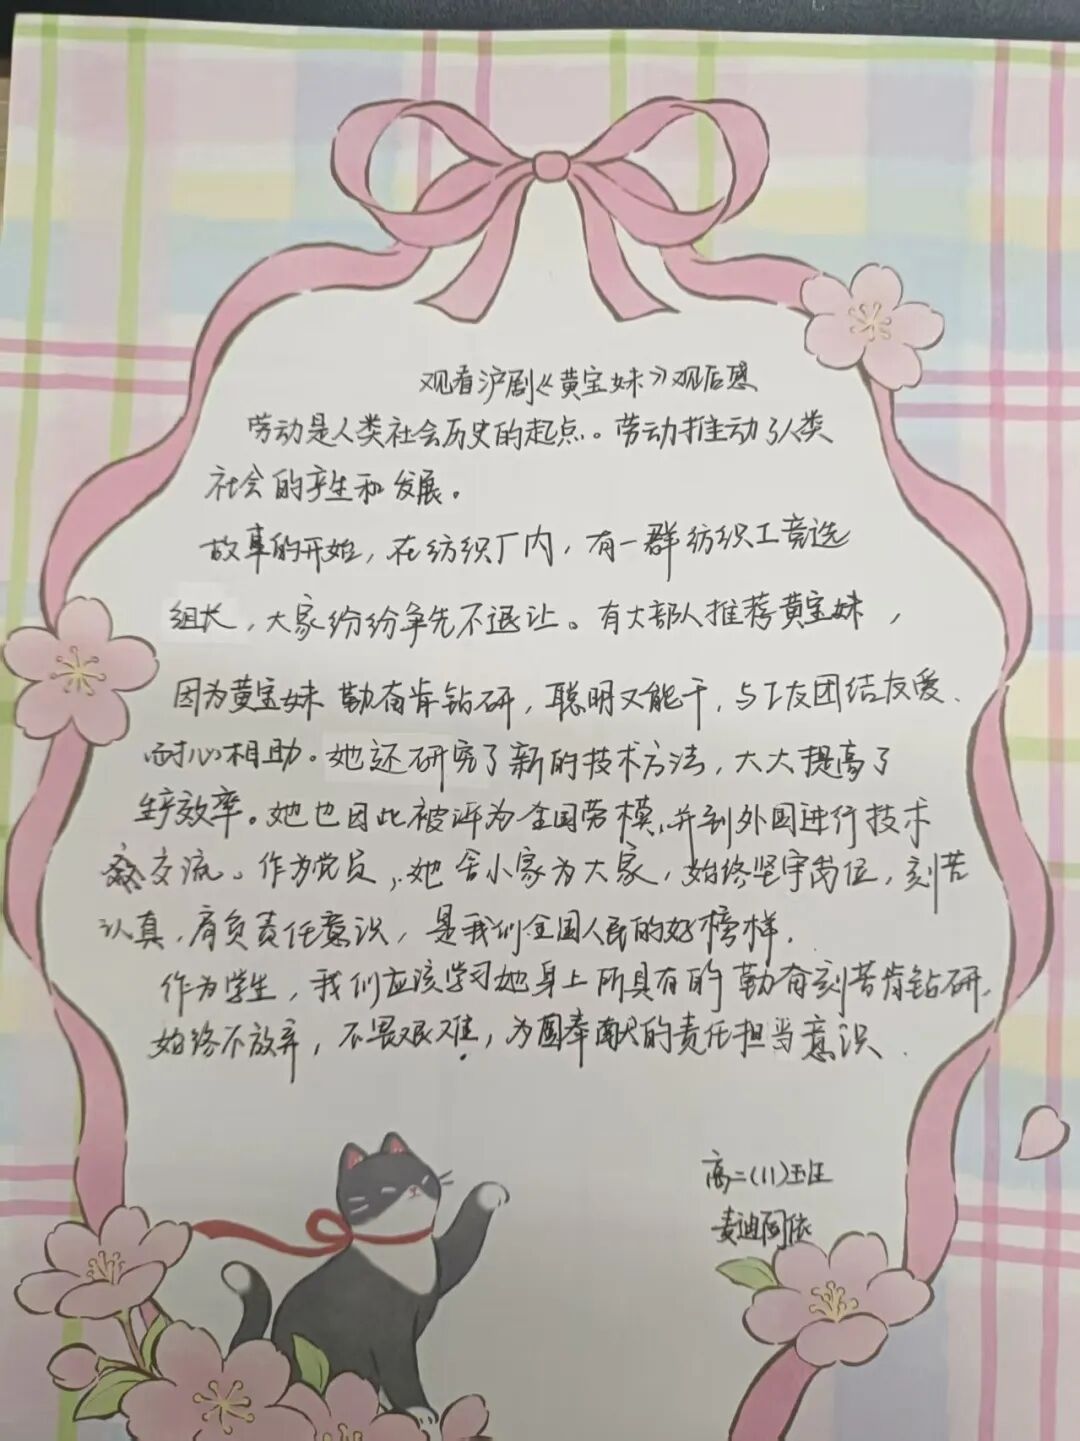 观看沪剧《黄宝妹》观后感
劳动是人类社会历史的起点。劳动推动了人类
社会的产生和发展。
故事的开始，在纺织厂内，有一群纺织工竞选
组长，大家纷纷争先不退让。有大部人推荐黄宝妹，
因为黄宝妹勤奋肯钻研，聪明又能干，与工友团结友爱、
耐心相助。她还研究了新的技术方法，大大提高了
生产效率。她也因此被评为全国劳模，并到外国进行技术
交流。作为党员，她舍小家为大家，始终坚守岗位，刻苦
认真，肩负责任意识，是我们全国人民的好榜样。
作为学生，我们应该学习她身上所具有的勤奋刻苦肯钻研，
始终不放弃，不畏艰难，为国奉献的责任担当意识。
高二(11)班
麦迪阿依